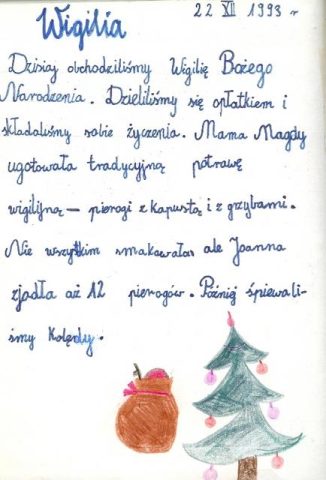 Wigilia 22 XII 1993 r
Dzisiaj obchodziliśmy Wigilię Bożego
Narodzenia. Dzieliliśmy się opłatkiem i
składaliśmy sobie życzenia. Mama Magdy
ugotowała tradycyjną potrawę
wigilijną — pierogi z kapustą i z grzybami.
Nie wszytkim smakowało ale Joanna
zjadła aż 12 pierogów. Później śpiewali-
śmy kolędy.